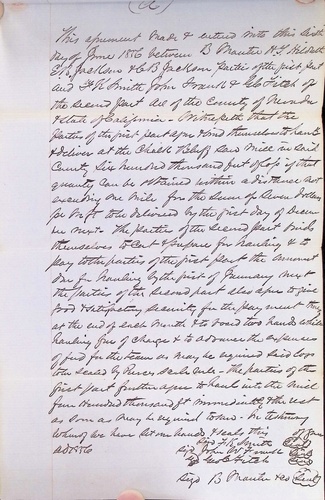 This agreement made & entered into this sixth
day of June 1856 between B Mauter H.
& C B Jackson parties of the first part
and F K Smith John Frank & Geo Fitch of
the second part all of the County of Nevada
& State of California – Witnesseth that the
parties of the first part agree & bind themselves to haul
& deliver at the Chalk Bluff Saw Mill in said
County Six hundred thousand feet of logs if that
quantity can be obtained within a distance not
exceeding one mile for the sum of Seven dollars
per M ft to be delivered by the first day of Decem
ber next. The parties of the second part binds
themselves to Cut & prepare for hauling & to
pay to the parties of the first part the amount
due for hauling by the first of January next
The parties of the second part also agree to give
good & satisfactory security for the payment
at the end of each month & to board two hands while
hauling free of charge & to advance the expenses
of feed for the team as may be required said logs
to be scaled by Scale – the parties of the
first part further agree to haul into the mill
four hundred thousand ft immediately & the rest
as soon as may be required to – In testimony
whereof we have set our hands & seals this
AD 1856
Sigd F K Smith
Sigd John
Sigd Geo C Fitch
Sigd B Mauter & Co